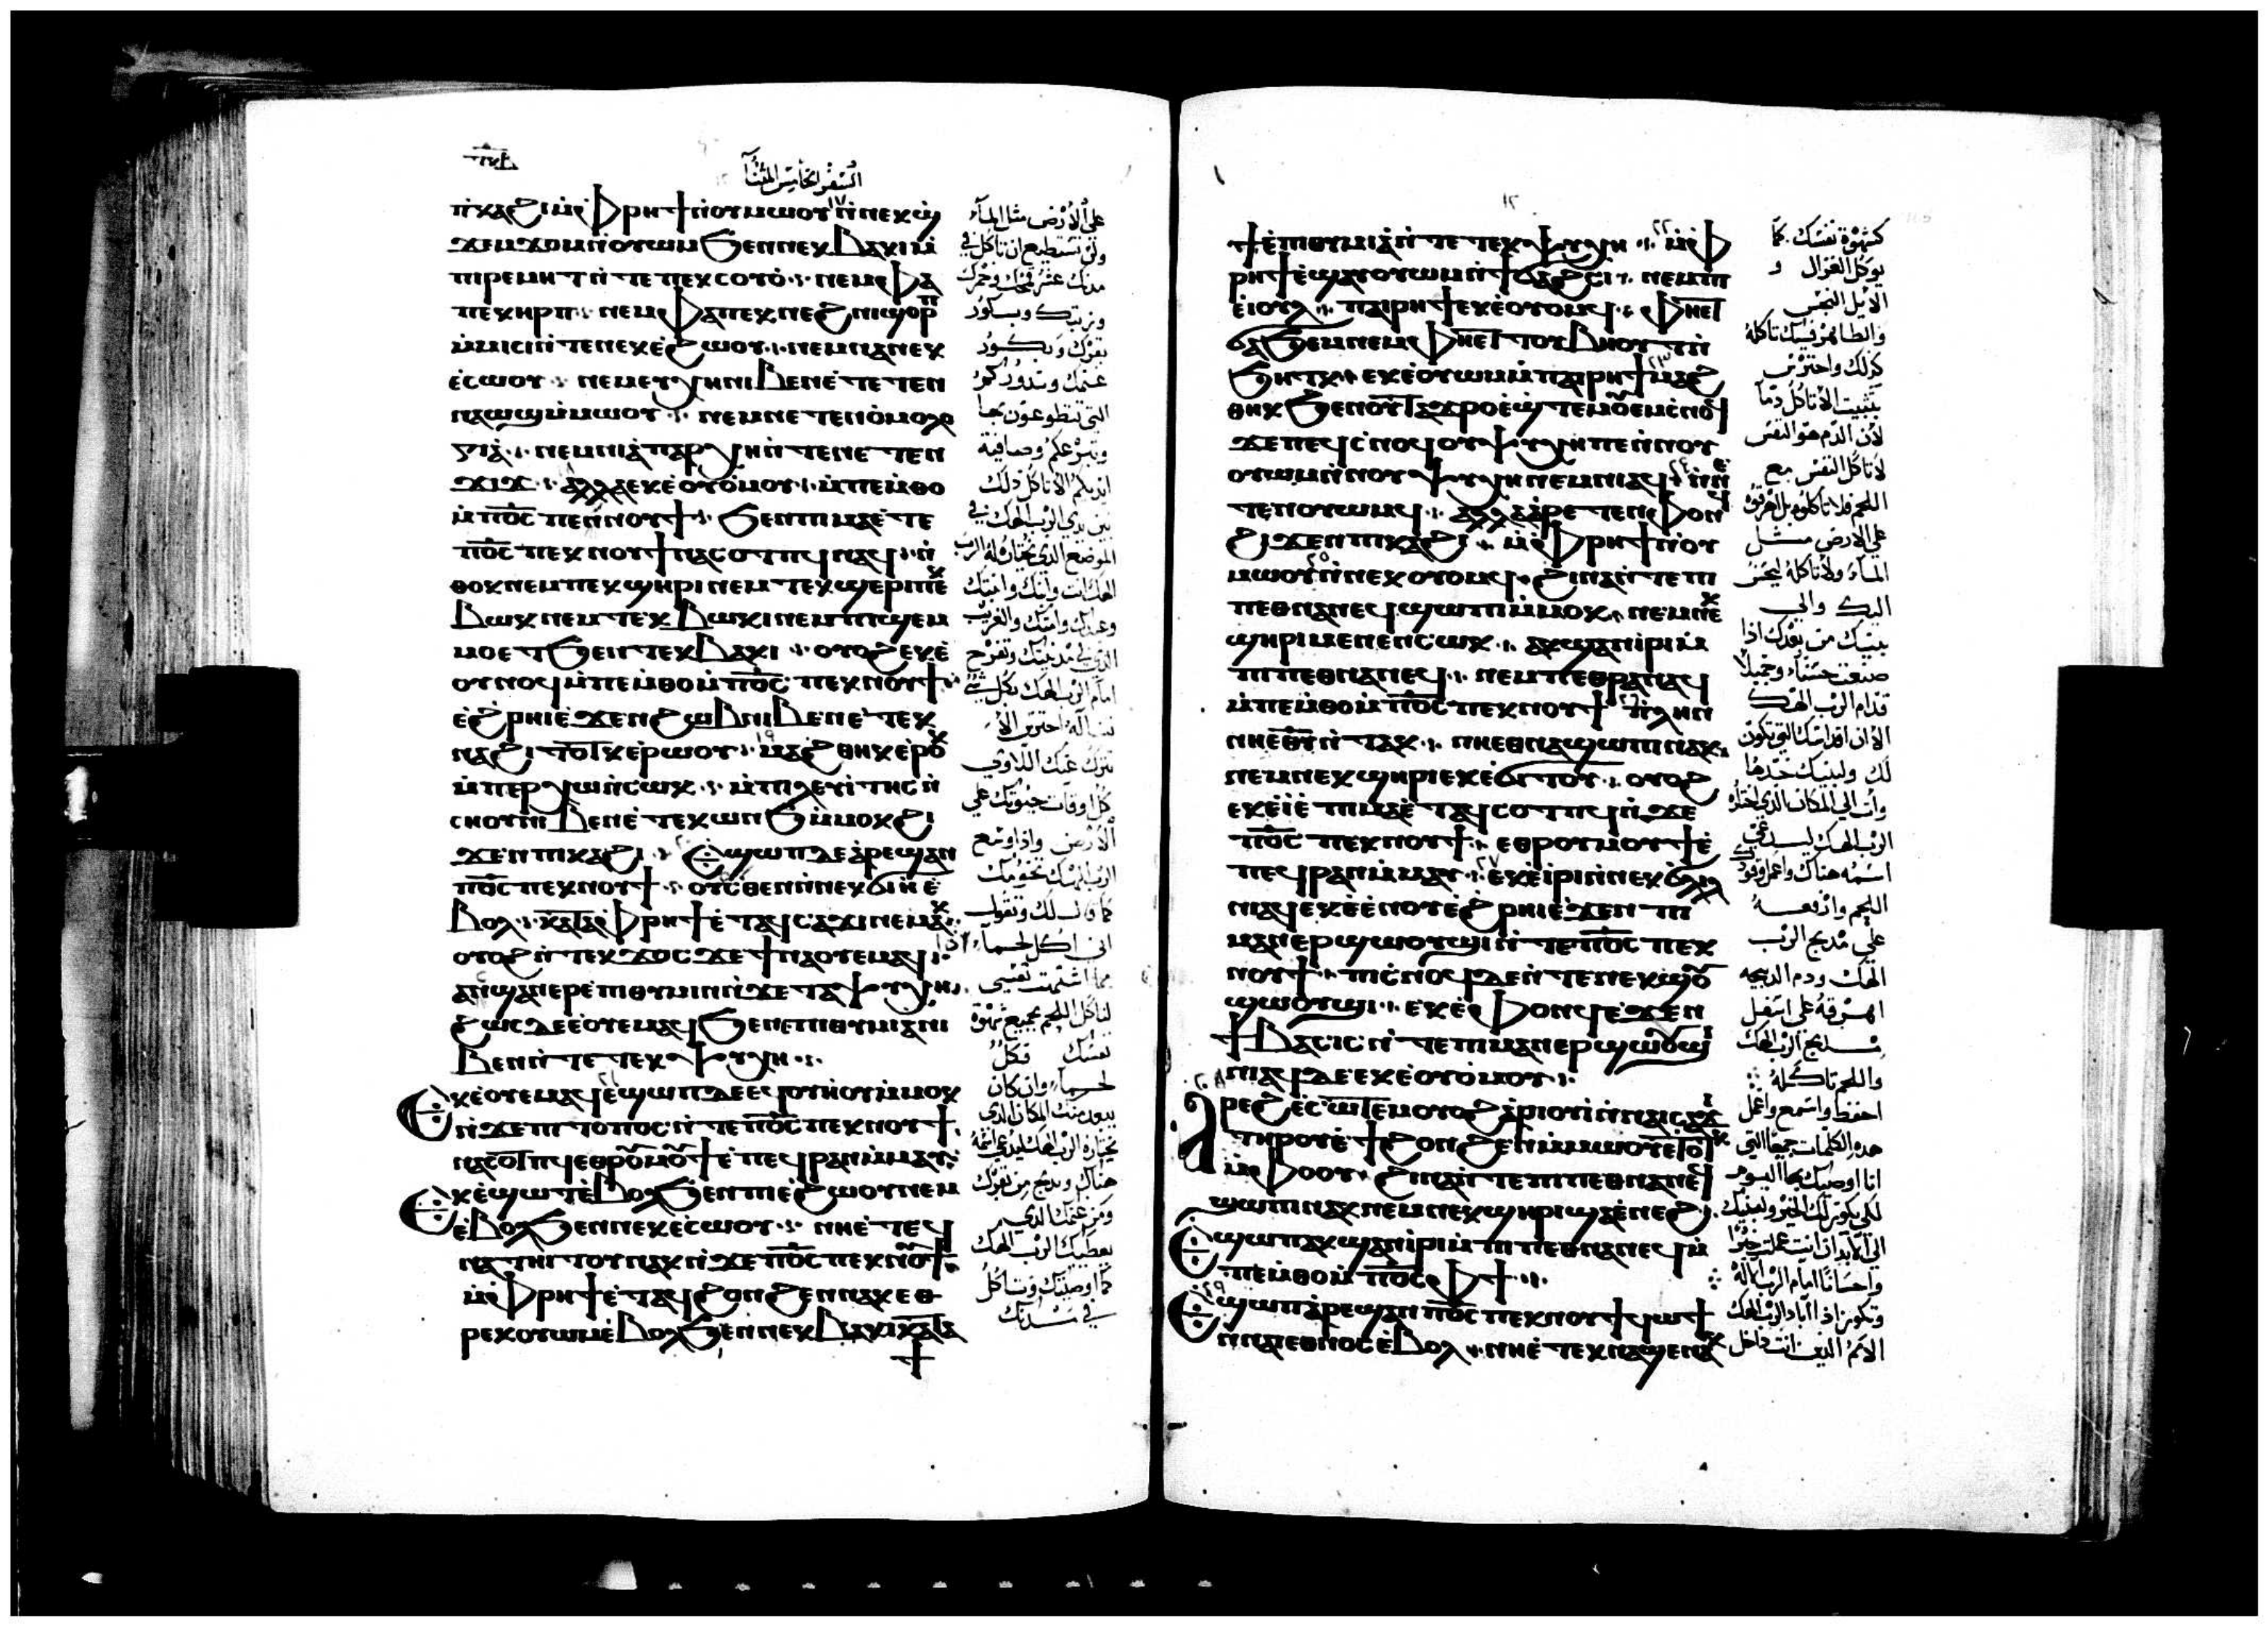 السفر الخامس المثنا
ⲡⲕⲁϩⲓ ⲙ̀ⲫⲣⲏϯ ⲛ̀ⲟⲩⲙⲱⲟⲩ ١٧ ⲛ̀ⲛⲉⲕϣ
ϫⲉⲙϫⲟⲙ ⲛ̀ⲟⲩⲱⲙ ϧⲉⲛ ⲛⲉⲕⲃⲁⲕⲓ ⲙ̀
ⲡⲓⲣⲉⲙⲏⲧ ⲛ̀ⲧⲉ ⲡⲉⲕⲥⲟⲩⲟ̀ ⲛⲉⲙ ⲫⲁ
ⲡⲉⲕⲏⲣⲡ ⲛⲉⲙ ⲫⲁ ⲡⲉⲕⲛⲉϩ ⲛⲓϣⲟⲣⲡ
ⲙ̀ⲙⲓⲥⲓ ⲛ̀ⲧⲉ ⲛⲉⲕⲉ̀ϩⲱⲟⲩ ⲛⲉⲙ ⲛⲁ ⲛⲉⲕ
ⲉ̀ⲥⲱⲟⲩ ⲛⲉⲙ ⲉⲩⲭⲏ ⲛⲓⲃⲉⲛ ⲉ̀ⲧⲉⲧⲉⲛ
ⲛⲁⲱϣ ⲙ̀ⲙⲱⲟⲩ ⲛⲉⲙ ⲛⲉⲧⲉⲛⲟ̀ⲙⲟⲗⲟ
ⲅⲓⲁ̀ ⲛⲉⲙ ⲛⲓⲁ̀ⲡⲁⲣⲭⲏ ⲛ̀ⲧⲉ ⲛⲉⲧⲉⲛ
ϫⲓϫ ⲁⲗⲗⲁ ⲉⲕⲉ̀ⲟⲩⲟ̀ⲙⲟⲩ ⲙ̀ⲡⲉⲙⲑⲟ
ⲙ̀ⲡⲟ̅ⲥ̅ ⲡⲉⲛⲛⲟⲩϯ ϧⲉⲛ ⲡⲓⲙⲁ ⲉ̀ⲧⲉ
ⲡⲟ̅ⲥ̅ ⲡⲉⲕⲛⲟⲩϯ ⲛⲁⲥⲟⲧⲡϥ ⲛⲁϥ ⲛ̀
ⲑⲟⲕ ⲛⲉⲙ ⲡⲉⲕϣⲏⲣⲓ ⲛⲉⲙ ⲧⲉⲕϣⲉⲣⲓ ⲡⲉⲕ
ⲃⲱⲕ ⲛⲉⲙ ⲧⲉⲕⲃⲱⲕⲓ ⲛⲉⲙ ⲡⲓϣⲉⲙ
ⲙⲟ ⲉⲧϧⲉⲛ ⲧⲉⲕⲃⲁⲕⲓ ⲟⲩⲟϩ ⲉⲕⲉ̀
ⲟⲩⲛⲟϥ ⲙ̀ⲡⲉⲙⲑⲟ ⲙ̀ⲡⲟ̅ⲥ̅ ⲡⲉⲕⲛⲟⲩϯ
ⲉ̀ϩⲣⲏⲓ ⲉ̀ϫⲉⲛ ϩⲱⲃ ⲛⲓⲃⲉⲛ ⲉ̀ⲧⲉⲕ
ⲛⲁϩⲓⲧⲟⲧⲕ ⲉ̀ⲣⲱⲟⲩ ١٩ ⲙⲁϩⲑⲏⲕ ⲉ̀ⲣⲟⲕ
ⲙ̀ⲡⲉⲣⲭⲱ ⲛ̀ⲥⲱⲕ ⲙ̀ⲡⲓⲗⲉⲩⲓⲧⲏⲥ ⲛ̀
ⲥⲛⲟⲩ ⲛⲓⲃⲉⲛ ⲉ̀ⲧⲉⲕⲱⲛϧ ⲙ̀ⲙⲟⲕ ϩⲓ
ϫⲉⲛ ⲡⲓⲕⲁϩⲓ Ⲉϣⲱⲡ ⲇⲉ ⲁ̀ⲣⲉϣⲁⲛ
ⲡⲟ̅ⲥ̅ ⲡⲉⲕⲛⲟⲩϯ ⲟⲩⲥⲑⲉⲛ ⲛ̀ⲛⲉⲕϭⲓⲏ ⲉ̀
ⲃⲟⲗ ⲕⲁⲧⲁ ⲫⲣⲏϯ ⲉ̀ⲧⲁϥⲥⲁϫⲓ ⲛⲉⲙⲁⲕ
ⲟⲩⲟϩ ⲛ̀ⲧⲉⲕϫⲟⲥ ϫⲉ ϯⲛⲁⲟⲩⲉⲙ ⲁϥ
ⲁⲛϣⲁⲛⲉⲣⲉ̀ⲡⲓⲑⲩⲙⲓⲛ ⲛ̀ϫⲉ ⲧⲁⲯⲩⲭⲏ
ϩⲱⲥ ⲇⲉ ⲉ̀ⲟⲩⲉⲙ ⲁϥ ϧⲉⲛ ⲉⲡⲓⲑⲩⲙⲓⲁ ⲛⲓ
ⲃⲉⲛ ⲛ̀ⲧⲉ ⲧⲉⲕⲯⲩⲭⲏ
Ⲉⲕⲉ̀ⲟⲩⲉⲙ ⲁϥ ٢١ ⲉ̀ϣⲱⲡ ⲇⲉ ⲉϥⲟⲩⲏⲟⲩ ⲙ̀ⲙⲟⲕ
ⲛ̀ϫⲉ ⲡⲓⲧⲟⲡⲟⲥ ⲛ̀ⲧⲉ ⲡⲟ̅ⲥ̅ ⲡⲉⲕⲛⲟⲩϯ
ⲛⲁⲥⲟⲧⲡϥ ⲉⲑⲣⲟⲩⲙⲟⲩϯ ⲉ̀ⲡⲉϥⲣⲁⲛ ⲙ̀ⲙⲁⲩ
Ⲉⲕⲉ̀ϣⲱⲧ ⲉ̀ⲃⲟⲗ ϧⲉⲛ ⲛⲓⲉ̀ϩⲱⲟⲩ ⲛⲉⲙ
ⲉ̀ⲃⲟⲗ ϧⲉⲛ ⲛⲉⲕⲉ̀ⲥⲱⲟⲩ ⲛⲏ ⲉ̀ⲧⲉϥ
ⲛⲁⲧⲏⲓⲧⲟⲩ ⲛⲁⲕ ⲛ̀ϫⲉ ⲡⲟ̅ⲥ̅ ⲡⲉⲕⲛⲟⲩϯ
ⲙ̀ⲫⲣⲏϯ ⲉ̀ⲧⲁϥϩⲟⲛϩⲉⲛ ⲛⲁⲕ ⲉⲑ
ⲣⲉⲕⲟⲩⲱⲙ ⲉ̀ⲃⲟⲗ ϧⲉⲛ ⲛⲉⲕⲃⲁⲕⲓ ⲕⲁⲧⲁ
ϯ
على الارض مثل الماء
ولن تستطيع ان تاكل في
مدنك عشر قمحك وخمرك
وزيتك وبكور
بقرك وبكور
غنمك ونذوركم
التي تنطوعون بها
ايديكم الا تاكل ذلك
بين يدي الرب الهك في
الموضع الذي يختاره له الرب
الهك انت وابنك وابنتك
وعبدك وامتك والغريب
الذي في مدينتك وتفرح
امام الرب الهك بكل شي
تترك عنك اللاوي
كل اوقات حيوتك على
الارض واذا وسع
الرب الهك تخومك
كما قال لك وتقول
اني اكل لحما اذا
ما اشتهت نفسي
لتاكل اللحم بجميع شهوة
نفسك فكل
لحما وان كان
بعيد منك المكان الذي
يختاره الرب الهك ليدعى اسمه
هناك وتذبح من بقرك
ومن غنمك الذي
يعطيك الرب الهك
كما اوصيتك وتاكل
في مدنك
ϯⲉ̀ⲡⲓⲑⲩⲙⲓⲁ ⲛ̀ⲧⲉ ⲧⲉⲕⲯⲩⲭⲏ ٢٢ ⲙ̀ⲫ
ⲣⲏϯ ⲉ̀ϣⲁⲩⲟⲩⲱⲙ ⲛ̀ϯϭⲁϩⲥⲓ ⲛⲉⲙ ⲡⲓ
ⲉⲓⲟⲩⲗ ⲡⲁⲓⲣⲏϯ ⲉⲕⲉ̀ⲟⲩⲟⲙϥ ⲫⲏⲉⲧ
ϭⲁϧⲉⲙ ⲛⲉⲙ ⲫⲏⲉⲧⲧⲟⲩⲃⲏⲟⲩⲧ ⲛ̀
ϧⲏⲧⲕ ⲉⲕⲉ̀ⲟⲩⲱⲙ ⲙ̀ⲡⲁⲓⲣⲏϯ ٢٣ ⲙⲁϩ
ⲑⲏⲕ ϧⲉⲛ ⲟⲩⲧⲁϫⲣⲟ ⲉ̀ϣⲧⲉⲙⲟⲩⲉⲙ ⲥⲛⲟϥ
ϫⲉ ⲡⲉϥⲥⲛⲟϥ ⲟⲩⲯⲩⲭⲏ ⲡⲉ ⲛ̀ⲛⲟⲩ
ⲟⲩⲱⲙ ⲛ̀ⲛⲟⲩⲯⲩⲭⲏ ⲛⲉⲙ ⲛⲓⲁϥ ٢٤ ⲛ̀ⲛⲉ
ⲧⲉⲛⲟⲩⲟⲙϥ ⲁⲗⲗⲁ ⲁ̀ⲣⲉⲧⲉⲛⲫⲟⲛϥ
ϩⲓϫⲉⲛ ⲡⲓⲕⲁϩⲓ ⲙ̀ⲫⲣⲏϯ ⲛ̀ⲟⲩ
ⲙⲱⲟⲩ ٢٥ ⲛ̀ⲛⲉⲕⲟⲩⲟⲙϥ ϩⲓⲛⲁ ⲛ̀ⲧⲉ ⲡⲓ
ⲡⲉⲑⲛⲁⲛⲉϥ ϣⲱⲡⲓ ⲙ̀ⲙⲟⲕ ⲛⲉⲙ ⲛⲉⲕ
ϣⲏⲣⲓ ⲙⲉⲛⲉⲛⲥⲱⲕ ⲁⲕϣⲁⲛⲓ̀ⲣⲓ ⲙ̀
ⲡⲓⲡⲉⲑⲛⲁⲛⲉϥ ⲛⲉⲙ ⲡⲉⲑⲣⲁⲛⲁϥ
ⲙ̀ⲡⲉⲙⲑⲟ ⲙ̀ⲡⲟ̅ⲥ̅ ⲡⲉⲕⲛⲟⲩϯ ⲡⲗⲏⲛ
ⲛⲏⲉ̅ⲑ̅ⲩ̅ ⲛ̀ⲧⲁⲕ ⲛⲏⲉⲑⲛⲁϣⲱⲡⲓ ⲛⲁⲕ
ⲛⲉⲙ ⲛⲉⲕϣⲏⲣⲓ ⲉⲕⲉ̀ϭⲓⲧⲟⲩ ⲟⲩⲟϩ
ⲉⲕⲉ̀ⲓ̀ ⲉ̀ⲡⲓⲙⲁ ⲉ̀ⲧⲁϥⲥⲟⲧⲡϥ ⲛ̀ϫⲉ
ⲡⲟ̅ⲥ̅ ⲡⲉⲕⲛⲟⲩϯ ⲉⲑⲣⲟⲩⲙⲟⲩϯ ⲉ̀
ⲡⲉϥⲣⲁⲛ ⲙ̀ⲙⲁⲩ ٢٧ ⲉⲕⲉ̀ⲓ̀ⲣⲓ ⲛ̀ⲛⲉⲕϭⲗⲓⲗ
ⲛⲓⲁϥ ⲉⲕⲉ̀ⲉ̀ⲛⲟⲩ ⲉ̀ϩⲣⲏⲓ ⲉ̀ϫⲉⲛ ⲡⲓ
ⲙⲁⲛⲉⲣϣⲱⲟⲩϣⲓ ⲛ̀ⲧⲉ ⲡⲟ̅ⲥ̅ ⲡⲉⲕ
ⲛⲟⲩϯ ⲡⲓⲥⲛⲟϥ ⲇⲉ ⲛ̀ⲧⲉ ⲛⲉⲕϣⲟⲩ
ϣⲱⲟⲩϣⲓ ⲉⲕⲉ̀ⲫⲟⲛϥ ⲉ̀ϫⲉⲛ
ϯⲃⲁⲥⲓⲥ ⲛ̀ⲧⲉ ⲡⲓⲙⲁⲛⲉⲣϣⲱⲟⲩϣⲓ
ⲛⲓⲁϥ ⲇⲉ ⲉⲕⲉ̀ⲟⲩⲟ̀ⲙⲟⲩ
٢٨ Ⲁⲣⲉϩ ⲉ̀ⲥⲱⲧⲉⲙ ⲟⲩⲟϩ ⲁ̀ⲣⲓⲟⲩⲓ̀ ⲛ̀ⲛⲁⲓⲥⲁϫⲓ
ⲧⲏⲣⲟⲩ ⲉ̀ϯϩⲟⲛϩⲉⲛ ⲙ̀ⲙⲱⲟⲩ ⲉ̀ⲧⲟⲧⲕ
ⲙ̀ⲫⲟⲟⲩ ϩⲓⲛⲁ ⲛ̀ⲧⲉ ⲡⲓⲡⲉⲑⲛⲁⲛⲉϥ
ϣⲱⲡⲓ ⲛⲁⲕ ⲛⲉⲙ ⲛⲉⲕϣⲏⲣⲓ ϣⲁ ⲉ̀ⲛⲉϩ
Ⲉϣⲱⲡ ⲁⲕϣⲁⲛⲓ̀ⲣⲓ ⲙ̀ⲡⲓⲡⲉⲑⲛⲁⲛⲉϥ ⲙ̀
ⲡⲉⲙⲑⲟ ⲙ̀ⲡⲟ̅ⲥ̅ ⲫϯ
٢٩ Ⲉϣⲱⲡ ⲁ̀ⲣⲉϣⲁⲛ ⲡⲟ̅ⲥ̅ ⲡⲉⲕⲛⲟⲩϯ ϥⲱϯ
ⲛ̀ⲛⲓⲉⲑⲛⲟⲥ ⲉ̀ⲃⲟⲗ ⲛⲏ ⲉ̀ⲧⲉⲕⲛⲁϣⲉⲛⲁⲕ
كشهوة نفسك كما
يوكل الغزال و
الايل النجس
والطاهر فيك تاكله
كذلك واحترس
بتثبيت الا تاكل دما
لان الدم هو النفس
لا تاكل النفس مع
اللحم فلا تاكلوه بل اهرقوه
على الارض مثل
الماء ولا تاكله ليحسن
اليك والى
بنيك من بعدك اذا
صنعت حسنا وجميلا
قدام الرب الهك
الا ان اقداسك التي تكون
لك ولبنيك خذها
وات الى المكان الذي اختاره
الرب الهك ليدعى
اسمه هناك واعمل وقودك
اللحم وارفعه
على مذبح الرب
الهك ودم الذبيحه
اهرقه على اسفل
مذبح الرب الهك
واللحم تاكله
احفظ واسمع واعمل
هذه الكلمات جميعها التي
انا اوصيك بها اليوم
لكي يكون لك الخير ولبنيك
الى الابد ان انت عملت خيرا
واحسانا امام الرب الاله
وتكون اذا اباد الرب الهك
الامم الذين انت داخل